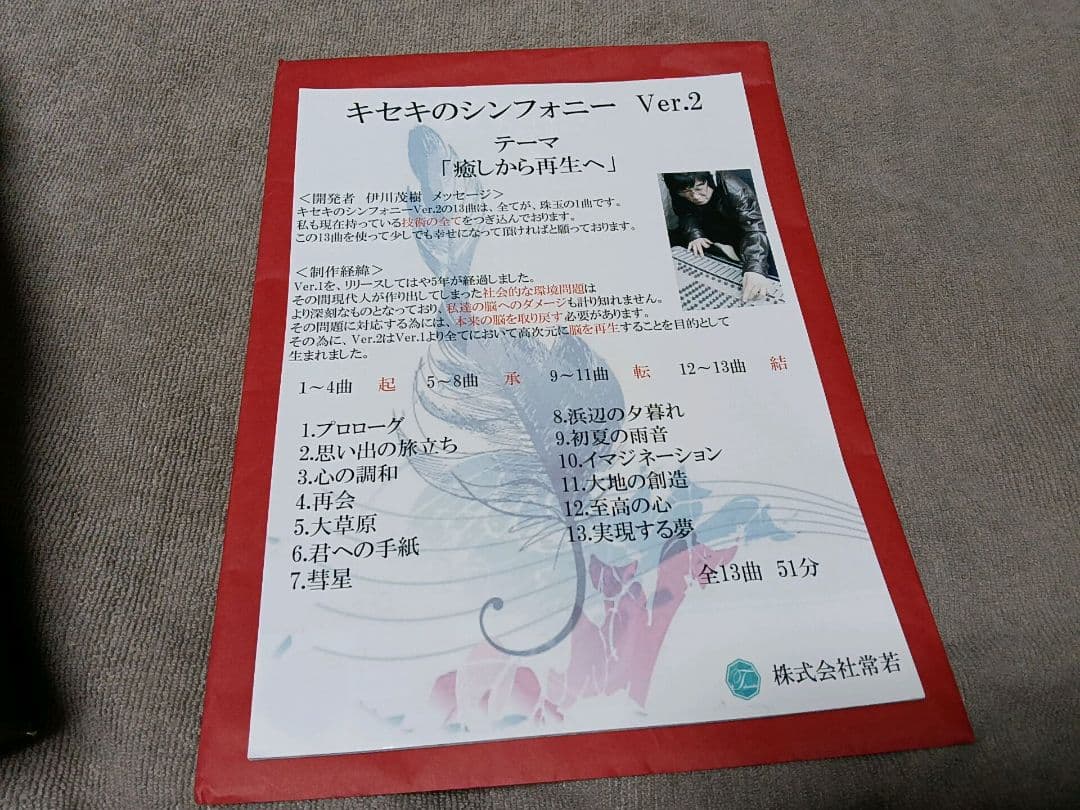 キセキのシンフォニー Ver.2
テーマ
「癒しから再生へ」
＜開発者 伊川茂樹 メッセージ＞
キセキのシンフォニーVer.2の13曲は、全てが、珠玉の1曲です。
私も現在持っている技術の全てをつぎ込んでおります。
この13曲を使って少しでも幸せになって頂ければと願っております。
＜制作経緯＞
Ver.1を、リリースしてはや5年が経過しました。
その間現代人が作り出してしまった社会的な環境問題は
より深刻なものとなっており、私達の脳へのダメージも計り知れません。
その問題に対応する為には、本来の脳を取り戻す必要があります。
その為に、Ver.2はVer.1より全てにおいて高次元に脳を再生することを目的として
生まれました。
1～4曲 起 5～8曲 承 9～11曲 転 12～13曲 結
1.プロローグ
2.思い出の旅立ち
3.心の調和
4.再会
5.大草原
6.君への手紙
7.彗星
8.浜辺の夕暮れ
9.初夏の雨音
10.イマジネーション
11.大地の創造
12.至高の心
13.実現する夢
全13曲 51分
株式会社常若